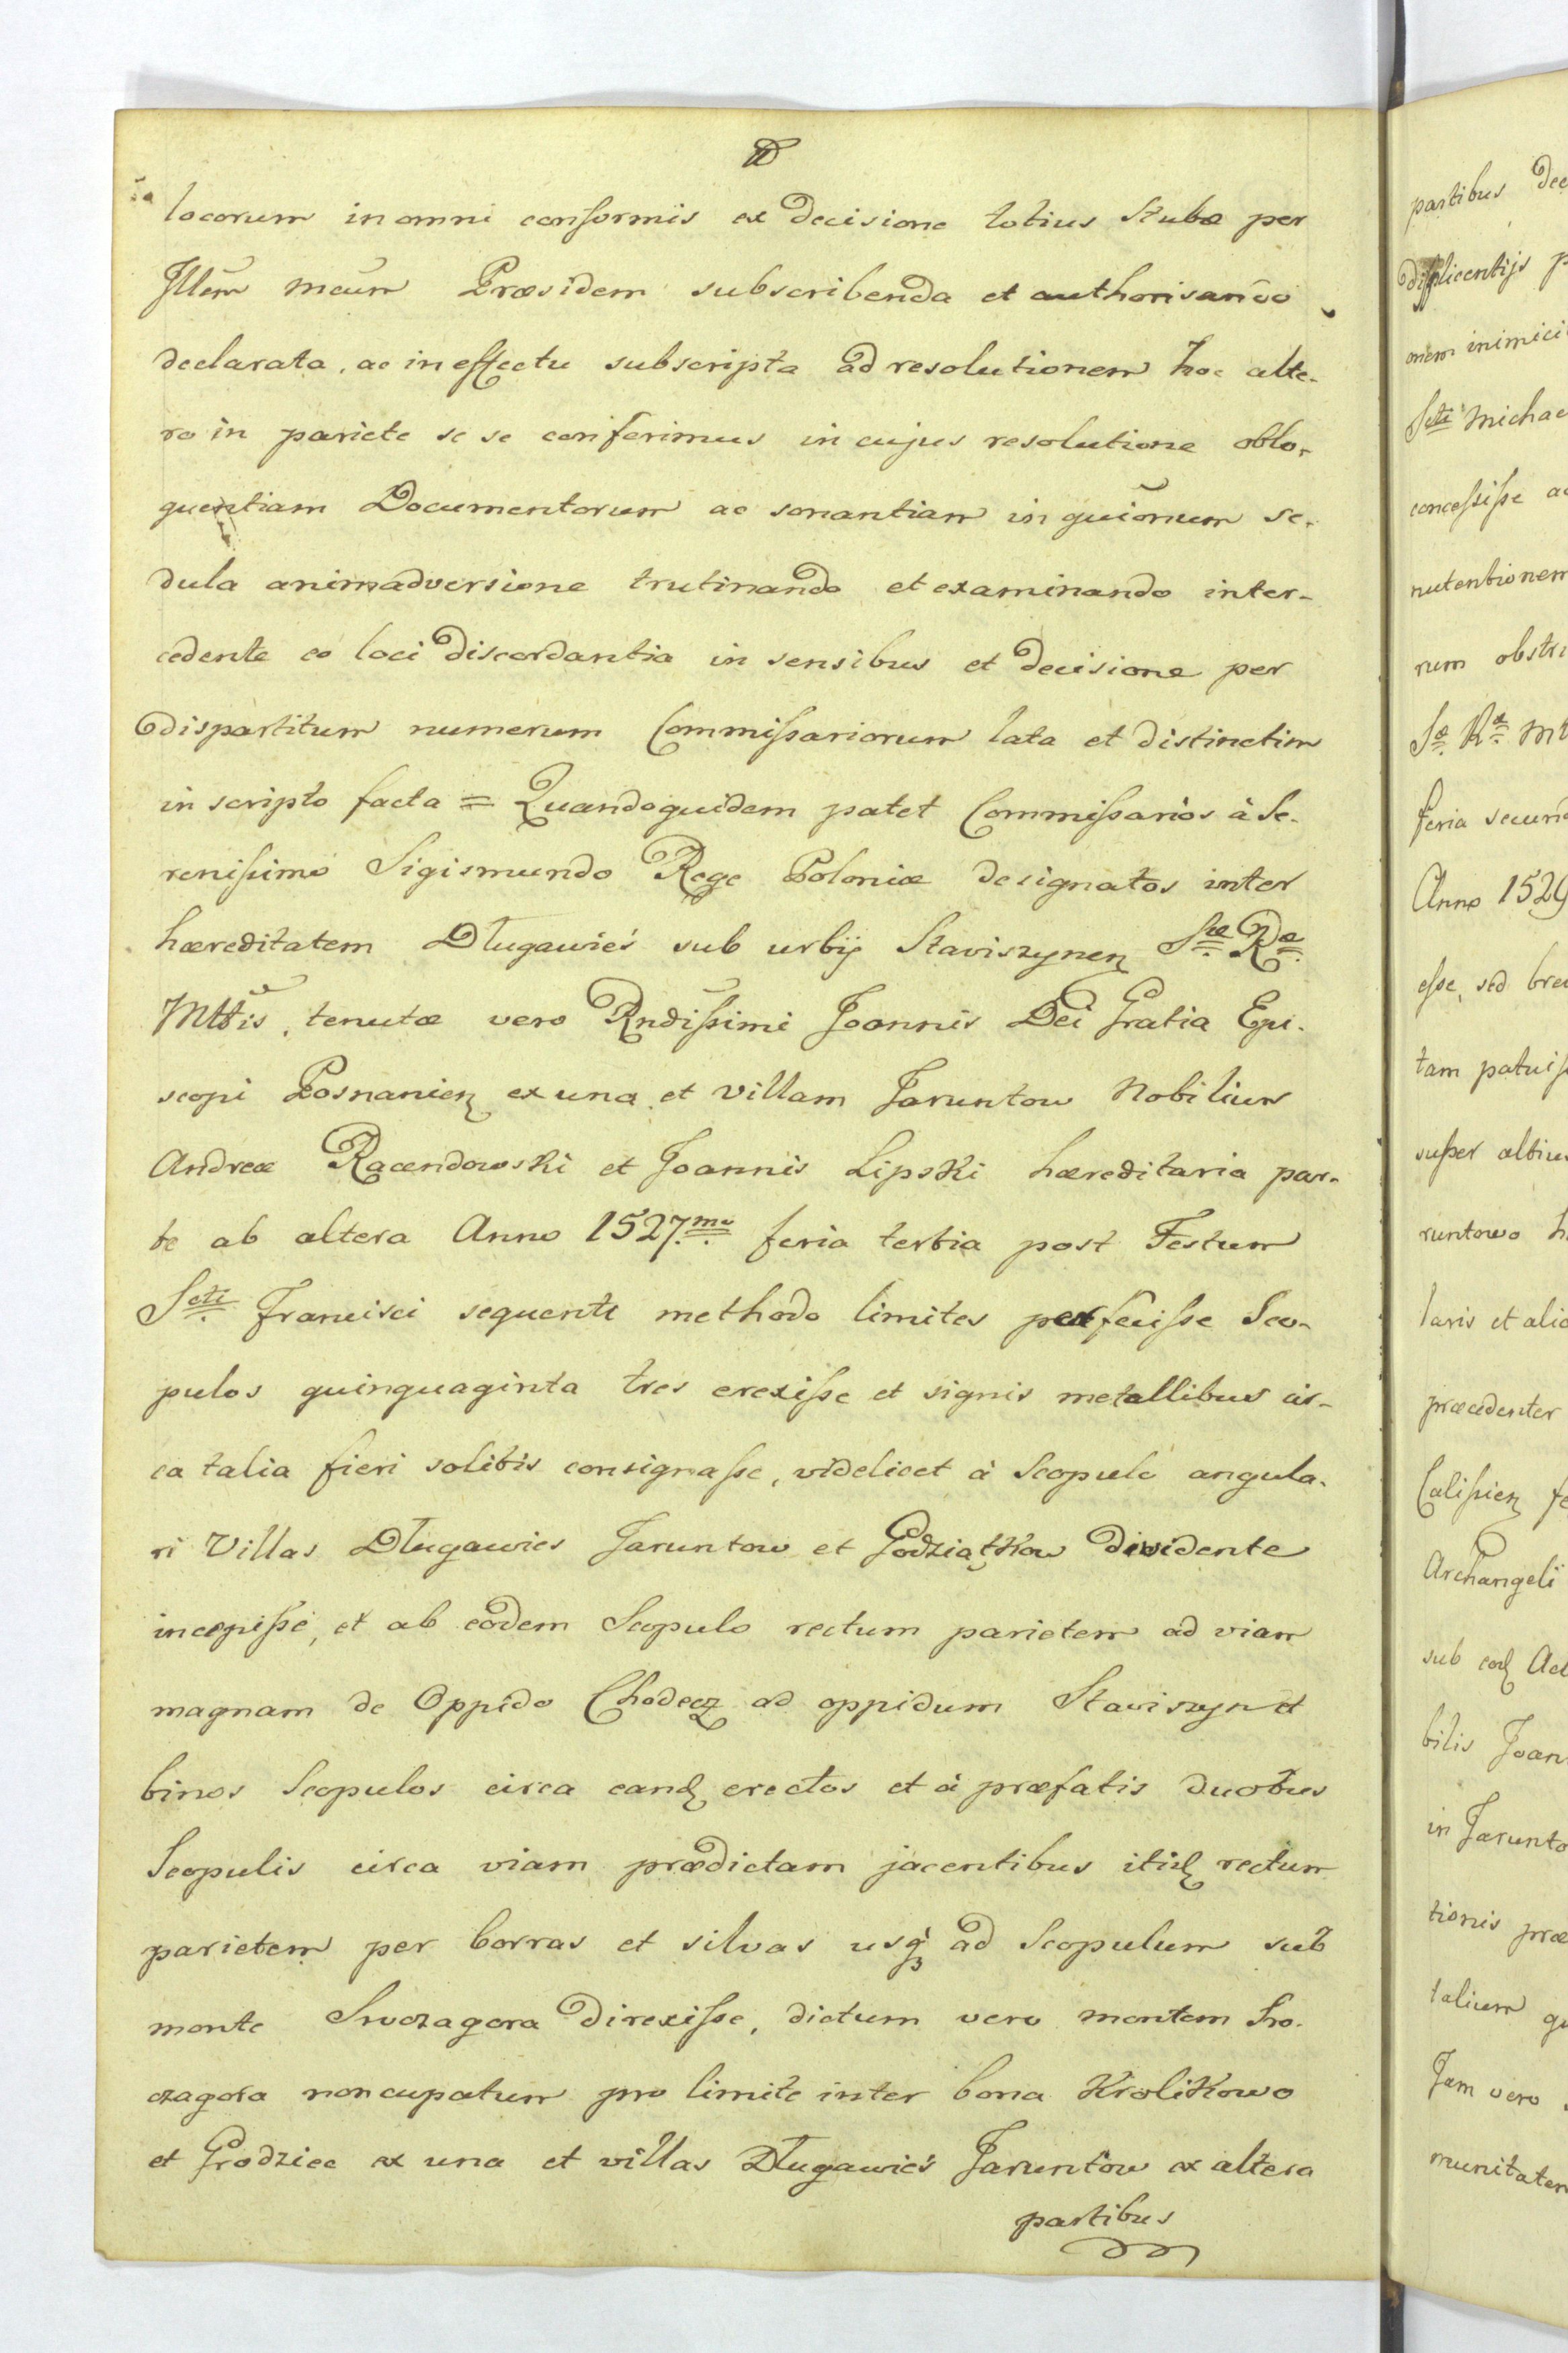 locorum in omni conformis ex decisione totius Stubæ per
Illem meum Præsidem subscribenda et authorisando
declarata, ac in effectu subscripta ad resolutionem hoc alte-
ro in pariete se se conferimus in cujus resolutione oblo-
quentiam Documentorum ac sonantiam inquiõnum se-
dula animadversione trutinando et examinando inter-
cedente eo loci discordantia in sensibus et decisione per
dispartitum numerum Commißariorum lata et distinctim
in scripto facta = Quandoquidem patet Commißarios à Se-
renißimo Sigismundo Rege Poloniæ designatos inter
hæreditatem Długawieś sub urbij Staviszynen Sæ Ræ
Mttis, tenutæ vero Rndißimi Joannis Dei Gratia Epi-
scopi Posnanien ex una et villam Jaruntow Nobilium
Andreæ Racendowski et Joannis Lipski hæreditaria par-
te ab altera Anno 1527mo feria tertia post Festum
Scti Francisci sequenti methodo limites perfeciße Sco-
pulos quinquaginta tres erexiße et signis metallibus cir-
ca talia fieri solitis consignaße, videlicet à Scopulo angula-
ri Villas Długawies Jaruntow et Godziątkow dividente
incepiße, et ab eodem Scopulo rectum parietem ad viam
magnam de Oppido Chodecz ad oppidum Staviszyn et
binos Scopulos circa eand erectos et à præfatis duobus
Scopulis circa viam prædictam jacentibus itid rectum
parietem per borras et silvas usq ad Scopulum sub
monte Sroczagora direxiße, dictum vero montem Sro-
czagora noncupatum pro limite inter bona Krolikowo
et Grodziec ex una et villas Długawieś Jaruntow ex altera
partibus
partibus Dec
displicentijs p
onem inimici
Scti Michae
conceßiße ac
nutentionem
rum obstri
Sæ Ræ Mt
feria secund
Anno 1529
eße, sed brev
tam patuiß
super altius
runtowo h
laris et alio
præcedenter
Calißien fe
Archangeli
sub eod Act
bilis Joan
in Jarunto
tionis præ
talium qu
Jam vero
munitatem